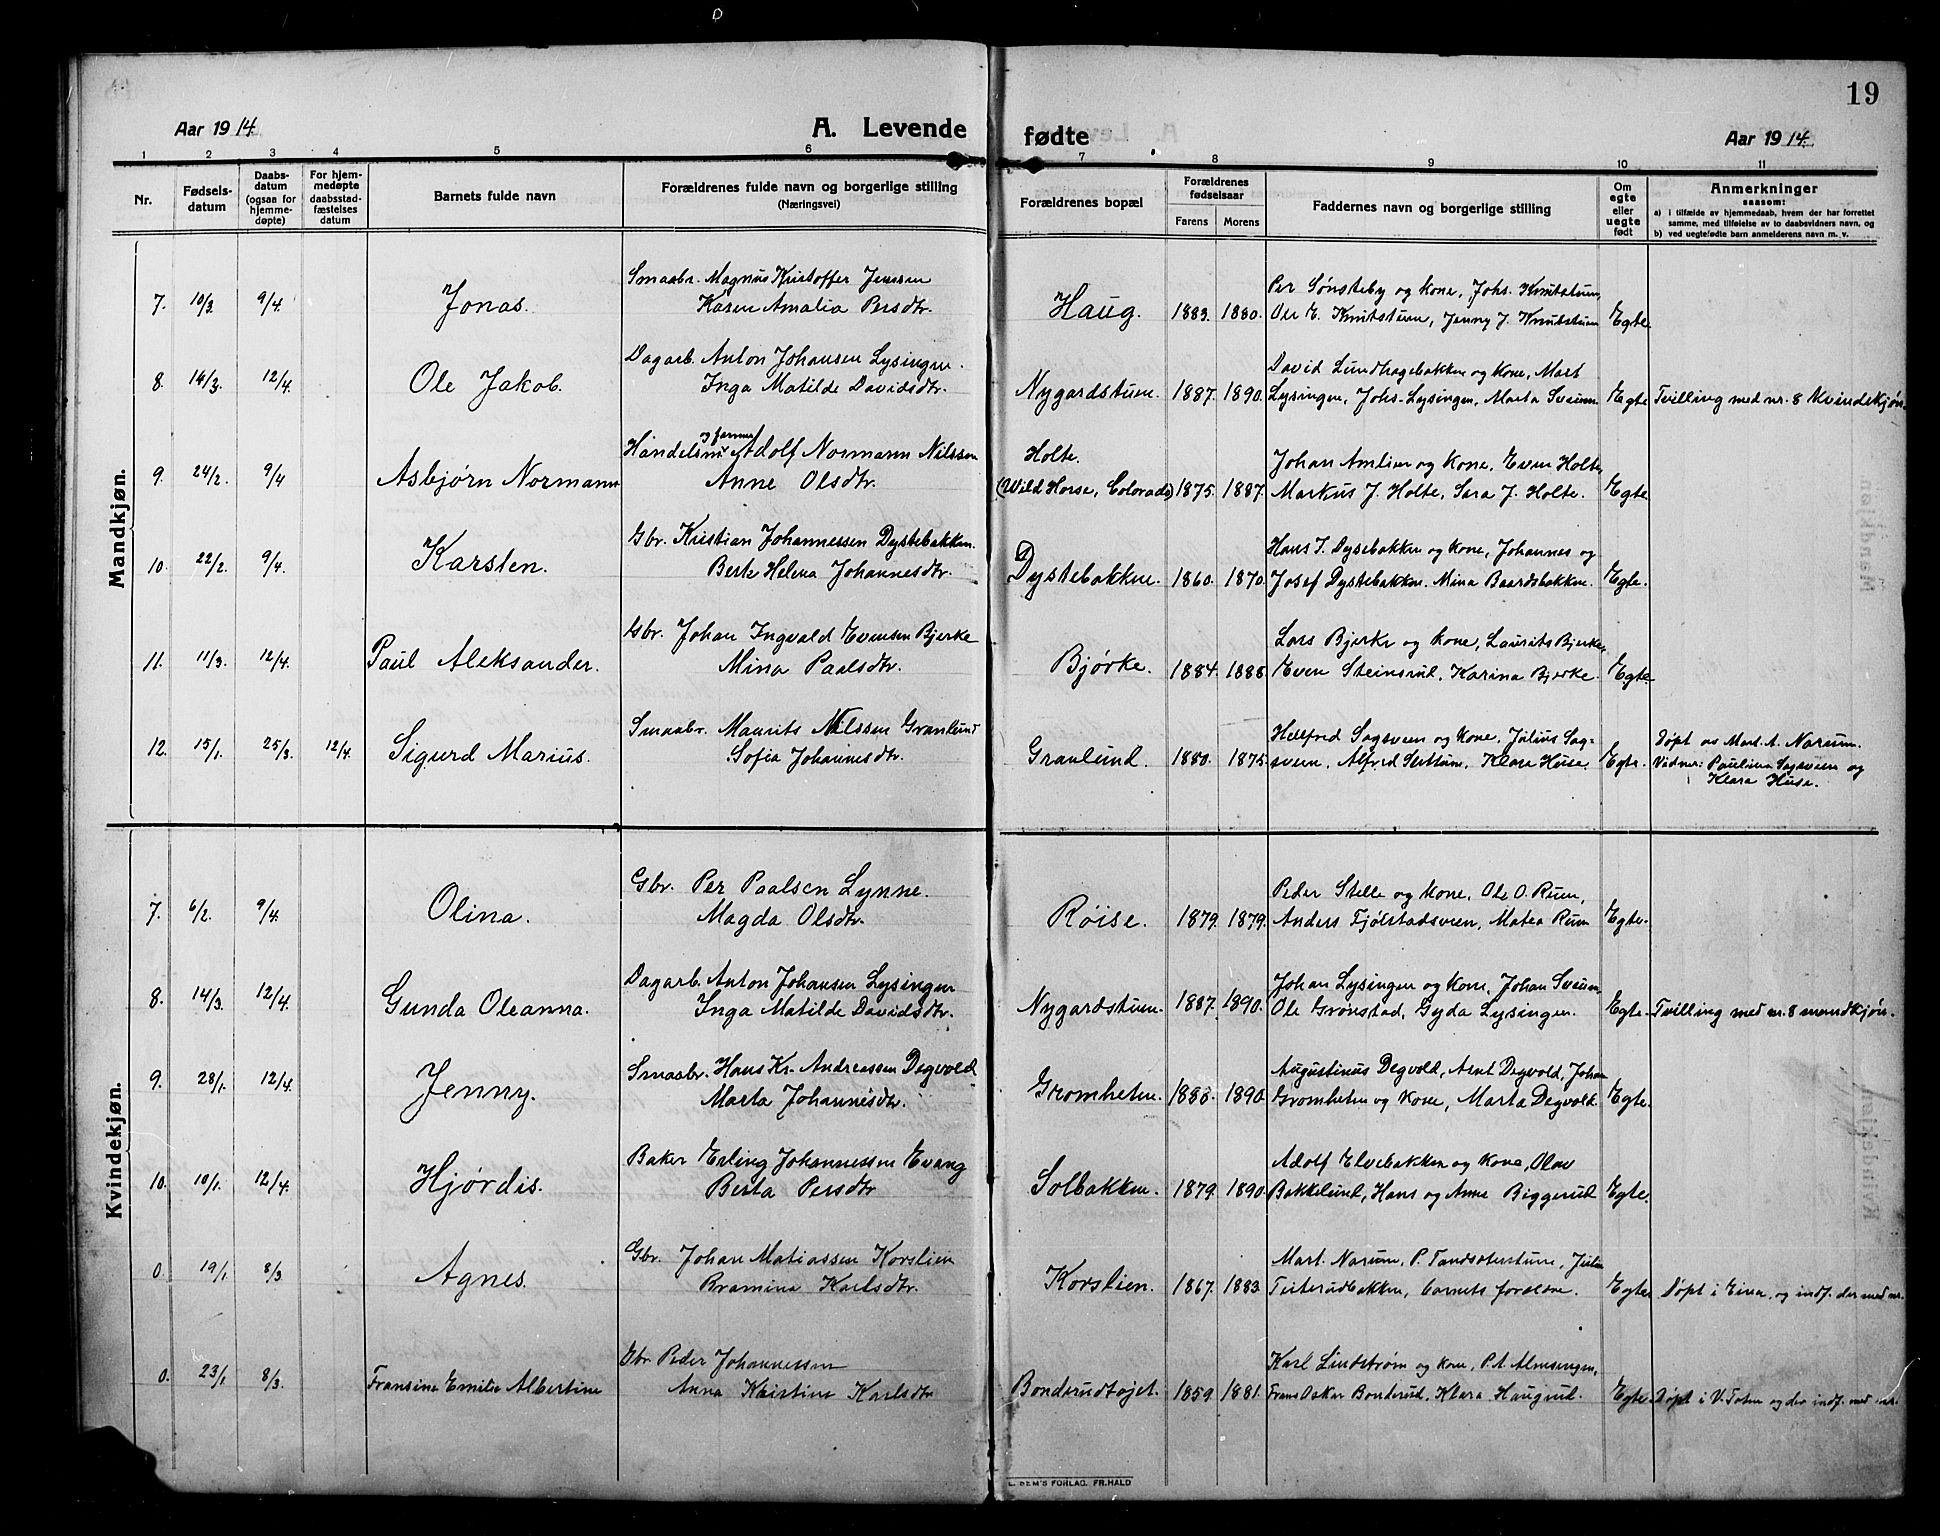 19
Aar 1914. A. Levende fødte Aar 1914.
1 2 3 4 5 6 7 8 9 10 11
Nr.
Fødselsdatum
Daabsdatum (ogsaa for hjemmedøpte)
For hjemmedøpte daabsstadfæstelses datum
Barnets fulde navn
Forældrenes fulde navn og borgerlige stilling
(Næringsvei)
Forældrenes bopæl
Forældrenes fødselsaar
Farens Morens
Faddernes navn og borgerlige stilling
Om egte eller uegte født
Anmerkninger
saasom:
a) i tilfælde av hjemmedaab, hvem der har forrettet
samme, med tilføielse av to daabsvidners navn, og
b) ved uegtefødte barn anmelderens navn m. v.
Mandkjøn.
7. 10/3 9/4. Jonas. Smaabr. Magnus Kristoffer Jenssen
Karen Amalia Persdtr. Haug. 1883. 1880. Per Sønsteby og kone, Johs. Knutstuen,
Ole E. Knutstuen, Jenny J. Knutstuen Egte.
8. 14/3. 12/4. Ole Jakob. Dagarb. Anton Johansen Lysingen.
Inga Matilde Davidsdtr. Nygardstuen. 1887. 1890. David Lundhagebakken og kone, Mart
Lysingen, Johs. Lysingen, Marta Sveum Egte Tvilling med nr. 8 Kvindekjøn.
9. 24/2. 9/4 Asbjørn Normann Handelsm. og farmer Adolf Normann Nilssen
Anne Olsdtr. Holte.
(Wild Horse, Colorado) 1875. 1887. Johan Amlien og kone, Even Holte,
Markus J. Holte, Sara J. Holte. Egte
10. 22/2. 9/4. Karsten. Gbr. Kristian Johannessen Dystebakken.
Berte Helena Johannesdtr. Dystebakken. 1860. 1870. Hans J. Dysebakken og kone, Johannes og
Josef Dystebakken. Mina Baardsbakken. Egte.
11. 11/3. 12/4. Paul Aleksander. Gbr. Johan Ingvald Evensen Bjerke
Mina Paalsdtr. Bjørke. 1884. 1888. Lars Bjerke og kone, Laurits Bjerke,
Even Steinsrud, Karina Bjerke. Egte
12. 15/1. 25/3. 12/4. Sigurd Marius. Smaabr. Maurits Nilssen Granlund
Sofia Johannesdtr. Granlund. 1880. 1875. Helfred Sagsveen og kone, Julius Sag-
sveen, Alfred Slettum, Klara Huse. Egte. Døpt av Mart. A. Narum.
Vidner: Paulina Sagsveen og
Klara Huse.
Kvindekjøn.
7. 6/2. 9/4. Olina. Gbr. Per Paalsen Lynne.
Magda Olsdtr. Røise. 1879. 1879. Peder Stelle og kone, Ole O. Ruen,
Anders Fjølstadsveen, Matea Ruen Egte.
8. 14/3. 12/4. Gunda Oleanna. Dagarb. Anton Johansen Lysingen
Inga Matilde Davidsdtr. Nygardstuen. 1887. 1890. Johan Lysingen og kone, Johan Sveum,
Ole Grønstad, Gyda Lysingen. Egte. Tvilling med nr. 8 mandkjøn.
9. 28/1. 12/4. Jenny. Smaabr. Hans Kr. Andreassen Degvold
Marta Johannesdtr. Gromheten. 1888. 1890. Augustinus Degvold, Arnt Degvold, Johan
Gromheten og kone, Marta Degvold. Egte.
10. 10/1. 12/4. Hjørdis. Baker Erling Johannessen Evang
Berta Persdtr Solbakken. 1879. 1890. Adolf Elvebakken og kone, Olav
Bakkelund, Hans og Anne Biggerud Egte.
0. 19/1 8/3 Agnes. Gbr. Johan Matiassen Korslien
Bramina Karlsdtr. Korslien. 1867. 1883. Mart. Narum, P. Julie
barnets foreldre. Egte Døpt i Eina, og indf. der med nr.
0. 23/1 8/3. Fransine Emilie Albertine Gbr. Peder Johannessen
Anna Kristine Karlsdtr Bonderudtøjet. 1859. 1881. Karl Lindstrøm og kone, P. A. Almsengen,
Frans Oskar Bonderud, Klara Haugrud. Egte. Døpt i V. Toten og der indf. med nr.
FORLAG. FR. HALD